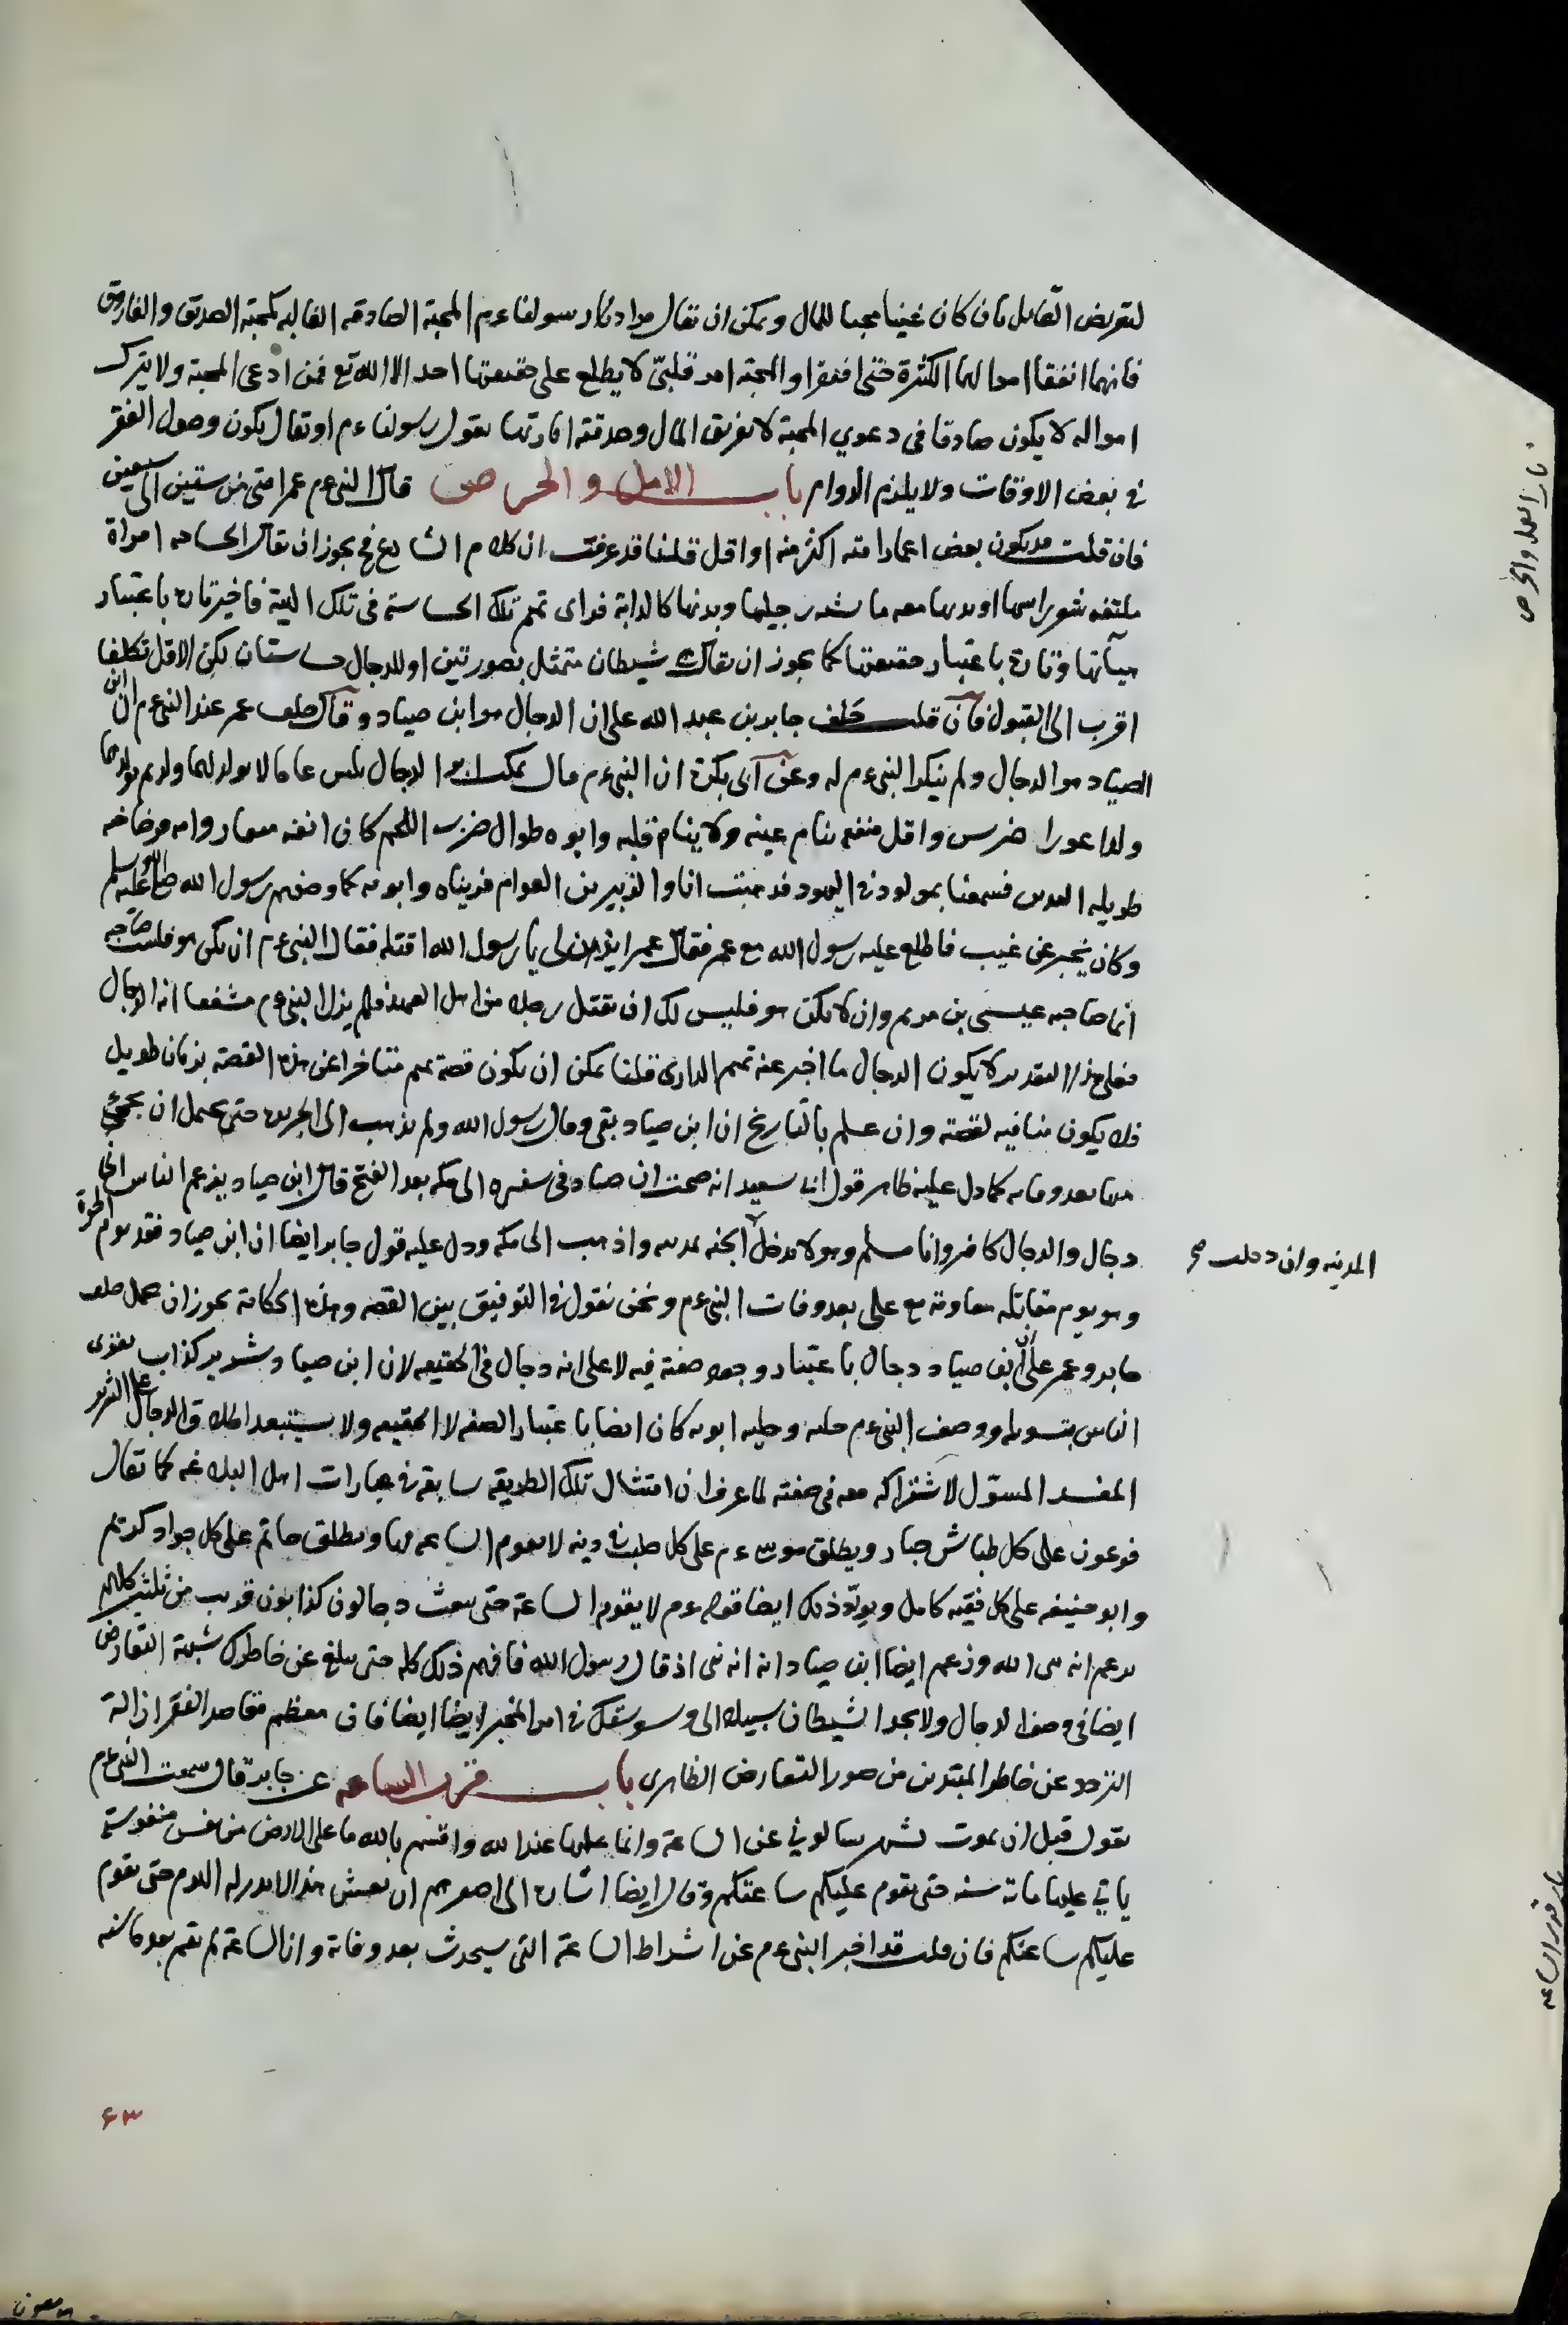 لتعريض القايل بان كان غنيا محبا للمال ويمكن ان يقال مراد رسولنا ءم المحبة الصادقه الغالبه كمحبة الصديق والفاروق
فانهما انفقا اموالهما الكثيرة حتى افتقرا والمحبة امر قلبيّ لا يطلع على حقيقتها احد الا الله تع فمن ادعى المحبة ولا يترك
امواله لا يكون صادقا في دعوي المحبة لا بفريق المال وصدقته بقول رسولنا ءم او يقال يكون وصول الفقر
في بعض الاوقات ولا يلزم الدوام باب الامل والحرص قال النبي ءم عمر امتي من ستين الى سبعين
فان قلت قد يكون بعض اعمار امته اكثر منه او اقل قلنا قد عرفت ان كلام يجوز ان يقال الجساسه امراة
ملتفه شعر راسها او بدنها معه ما يشد رجيلها وبدنها كالدابة فراى تميم تلك الجساسة في تلك فاخبر تارة باعتبار
هيآتها وتارة باعتبار حقيقتها كما يجوز ان يقال شيطان متمثل بصورتين او للدجال جساستان لكن الاقل تكلفا
اقرب الى القبول فان قلت حلف جابر بن عبد الله على ان الدجال هو ابن صياد وقال حلف عمر عند النبي ءم ان ابن
الصياد هو الدجال ولم ينكر النبي ءم له وعن ابى بكرة ان النبي ءم قال يمكث ابوا الدجال ثلثين عاما لا يولد لهما ولد ثم يولد لهما
ولد اعور اضرس واقل منفعه تنام عينه ولا ينام قلبه وابوه طوال ضرب اللحم كان انفه منقار وامه فرضاخه
طويله اليدين فسمعنا بمولود في اليهود فذهبت انا والزبير بن العوام فرئيناه وابويه كما وصفهم رسول الله صلى الله عليه وسلم
وكان يخبر عن غيب فاطلع عليه رسول الله مع عمر فقال عمر ايذن لى يا رسول الله اقتله فقال النبي ءم ان يكن هو فلست صاحبه
انما صاحبه عيسى بن مريم وان لا يكن هو فليس لك ان تقتل رجلا من اهل العهد فلم يزل النبي ءم مشفقا انه الدجال
فعلى هذا التقدير لا يكون الدجال ما اخبر عنه تميم الدارى قلنا يمكن ان يكون قصة تميم متاخرا عن هذه القصة بزمان طويل
فلا يكون منافيه لقصته وان علم بالتاريخ ان ابن صياد بقى وفات رسول الله ولم يذهب الى البحرين حتى يحتمل ان يجئ
منها بعد وفاته كما دل عليه ظاهر قول ابى سعيد انه صحبت ابن صياد في سفره الى مكه بعد الفتح قال ابن صياد يزعم الناس انى
دجال والدجال كافر وانا مسلم وهو لا يدخل الجنه واذهب الى مكه ودل عليه قول جابر ايضا ان ابن صياد فقد يوم الحرة
المدينه وان دخلت صح
وهو يوم مقابله معاويه مع على بعد وفات النبي ءم ونحن نقول في التوفيق بين القصه وهذه الحكاية يجوز ان يحمل حلف
جابر وعمر على ان ابن صياد دجال باعتبار وجود صفته فيه لا على انه دجال في الحقيقه لان ابن صياد شرير كذاب يغوى
الناس بتسويله ووصف النبي ءم حليه وحليه ابويه كان ايضا باعتبار الصفه لا الحقيقه ولا يستبعد اطلاق الدجال على الشرير
المفسد المسوّل لاشتراكه معه في صفته لما عرف ان امتثال تلك الطريقه سابقه في عبارات اهل البلاغه كما يقال
فرعون على كل بطاش جبار ويطلق موسى ءم على كل صلب في دينه ويطلق حاتم على كل جواد كريم
وابو حنيفه على كل فقيه كامل ويويّد ذلك ايضا قوله ءم لا يقوم الساعة حتى يبعث دجالون كذابون قريب من ثلثين كلهم
يزعم انه نبى الله وزعم ايضا ابن صياد انه نبى اذ قال رسول الله فافهم ذلك كله حتى يبلغ عن خاطرك شبهة التعارض
ايضا في وصف الدجال ولا يجد الشيطان سبيلا الى وسوستك في امر المخبر ايضا ايضا فان معظم مقاصد الفقر ازالة
التردد عن خاطر المبتدين من صور التعارض الظاهرى باب قرب الساعه عن جابر قال سمعت النبي ءم
يقول قبل ان يموت بشهر تسالوني عن الساعة وانما علمها عند الله واقسم بالله ما على الارض من نفس منفوسة
ياتي عليها مائة سنه حتى يقوم عليكم ساعتكم وقال ايضا اشارة الى اصغرهم ان يعيش هذا لا يدركه الهرم حتى يقوم
عليكم ساعتكم فان قلت قد اخبر النبي ءم عن اشراط الساعة التى سيحدث بعد وفاته وان الساعة لم تقم بعد مائه
٦٣